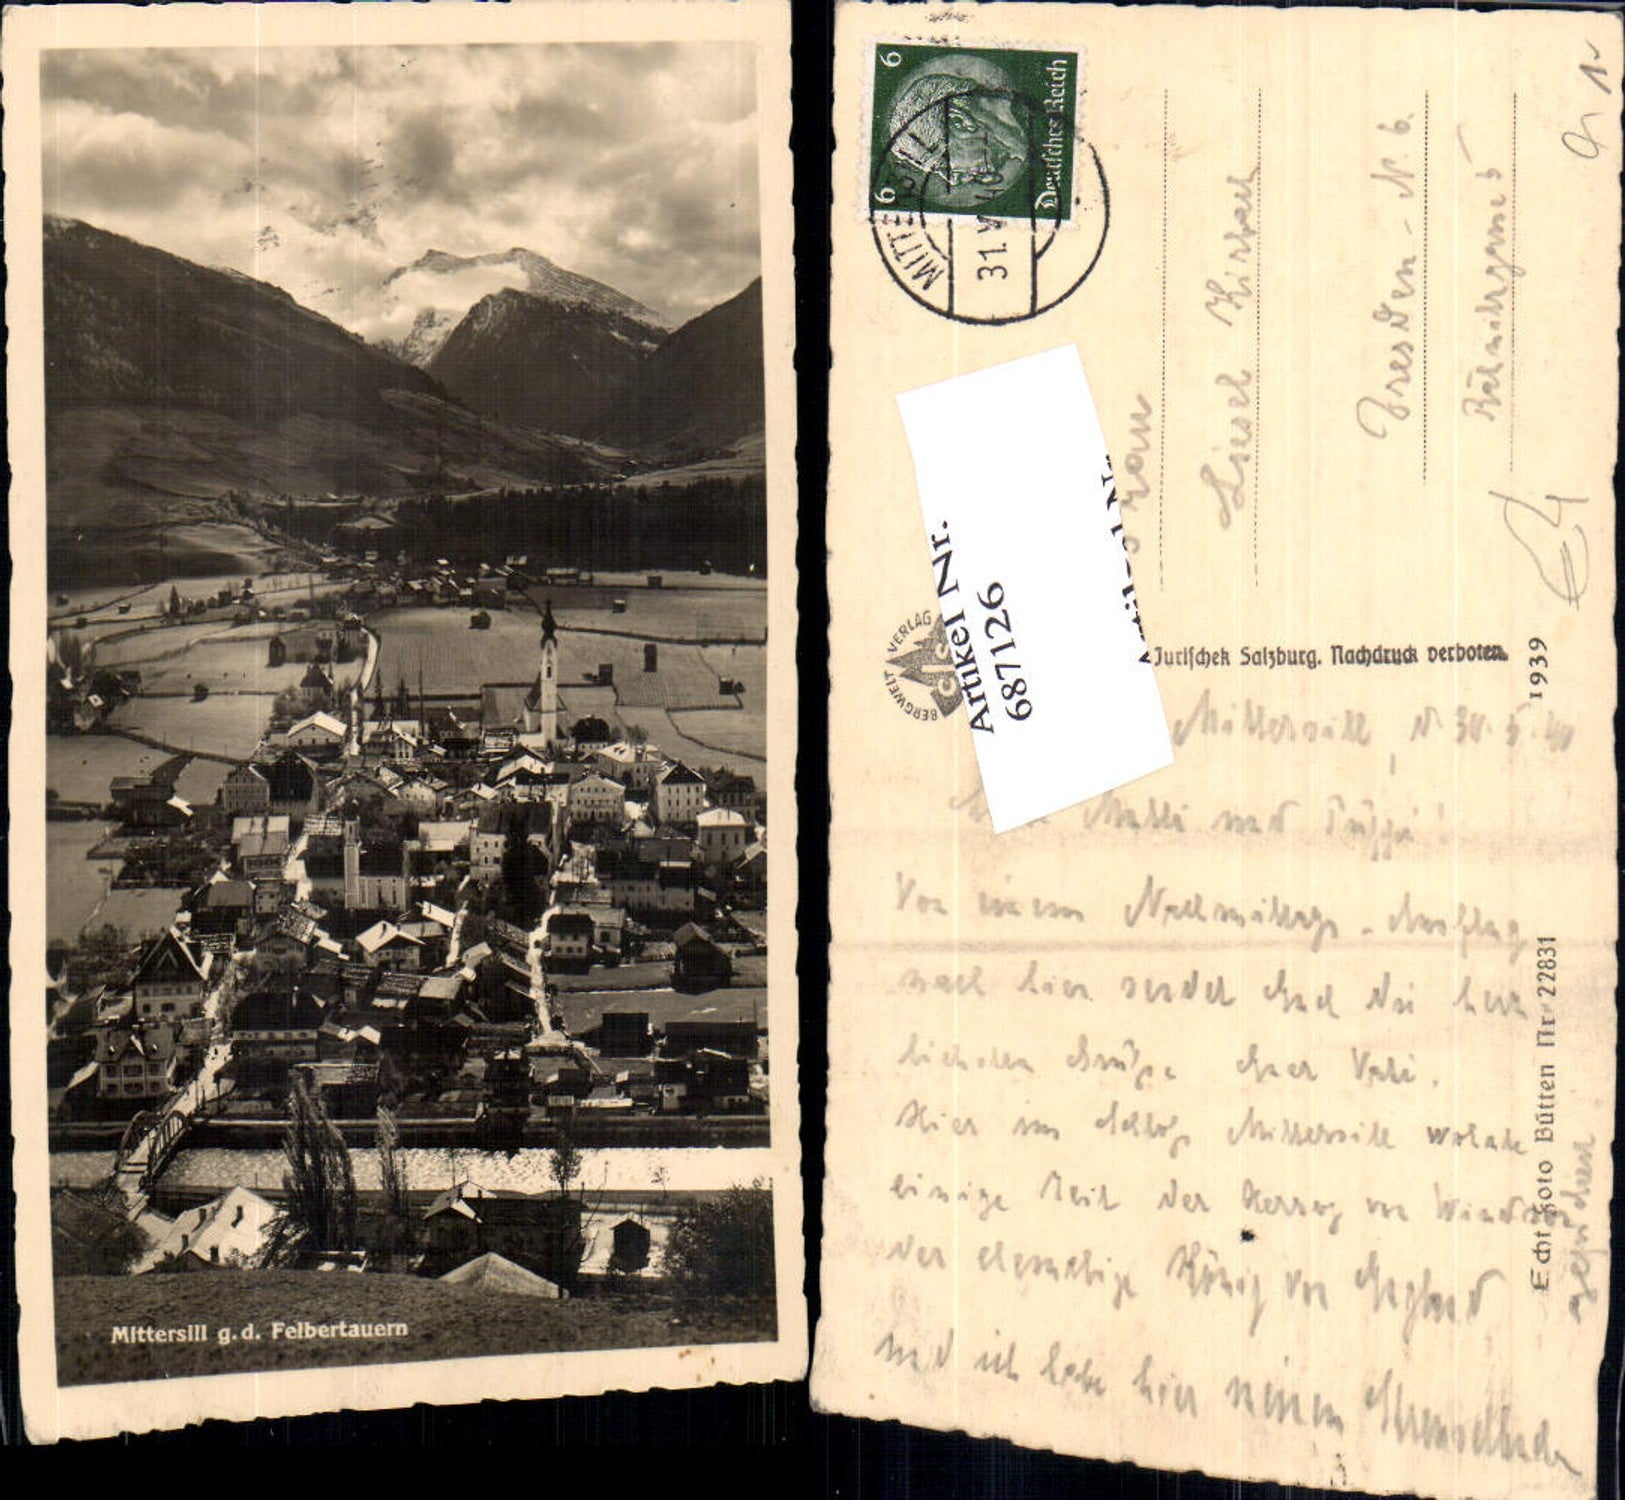 Mittersill g.d. Felbertauern
6 6
Deutsches Reich
MITTERSILL
31.V.40
Liesel Kirbach
Dresden-N. 6.
Artikel Nr.
687126
BERGWELT VERLAG
Jurischek Salzburg. Nachdruck verboten.
1939
Echt Foto Bütten Nr. 22831
Mittersill, d. 30.5.40
Mutti und
Von einem Nachmittags-Ausflug
nach hier sendet Euch die herz
lichsten Grüße Euer Vati.
Hier im Schloß Mittersill wohnte
einige Zeit der Herzog von Windsor
der ehemalige König von England
und ich habe hier meinen